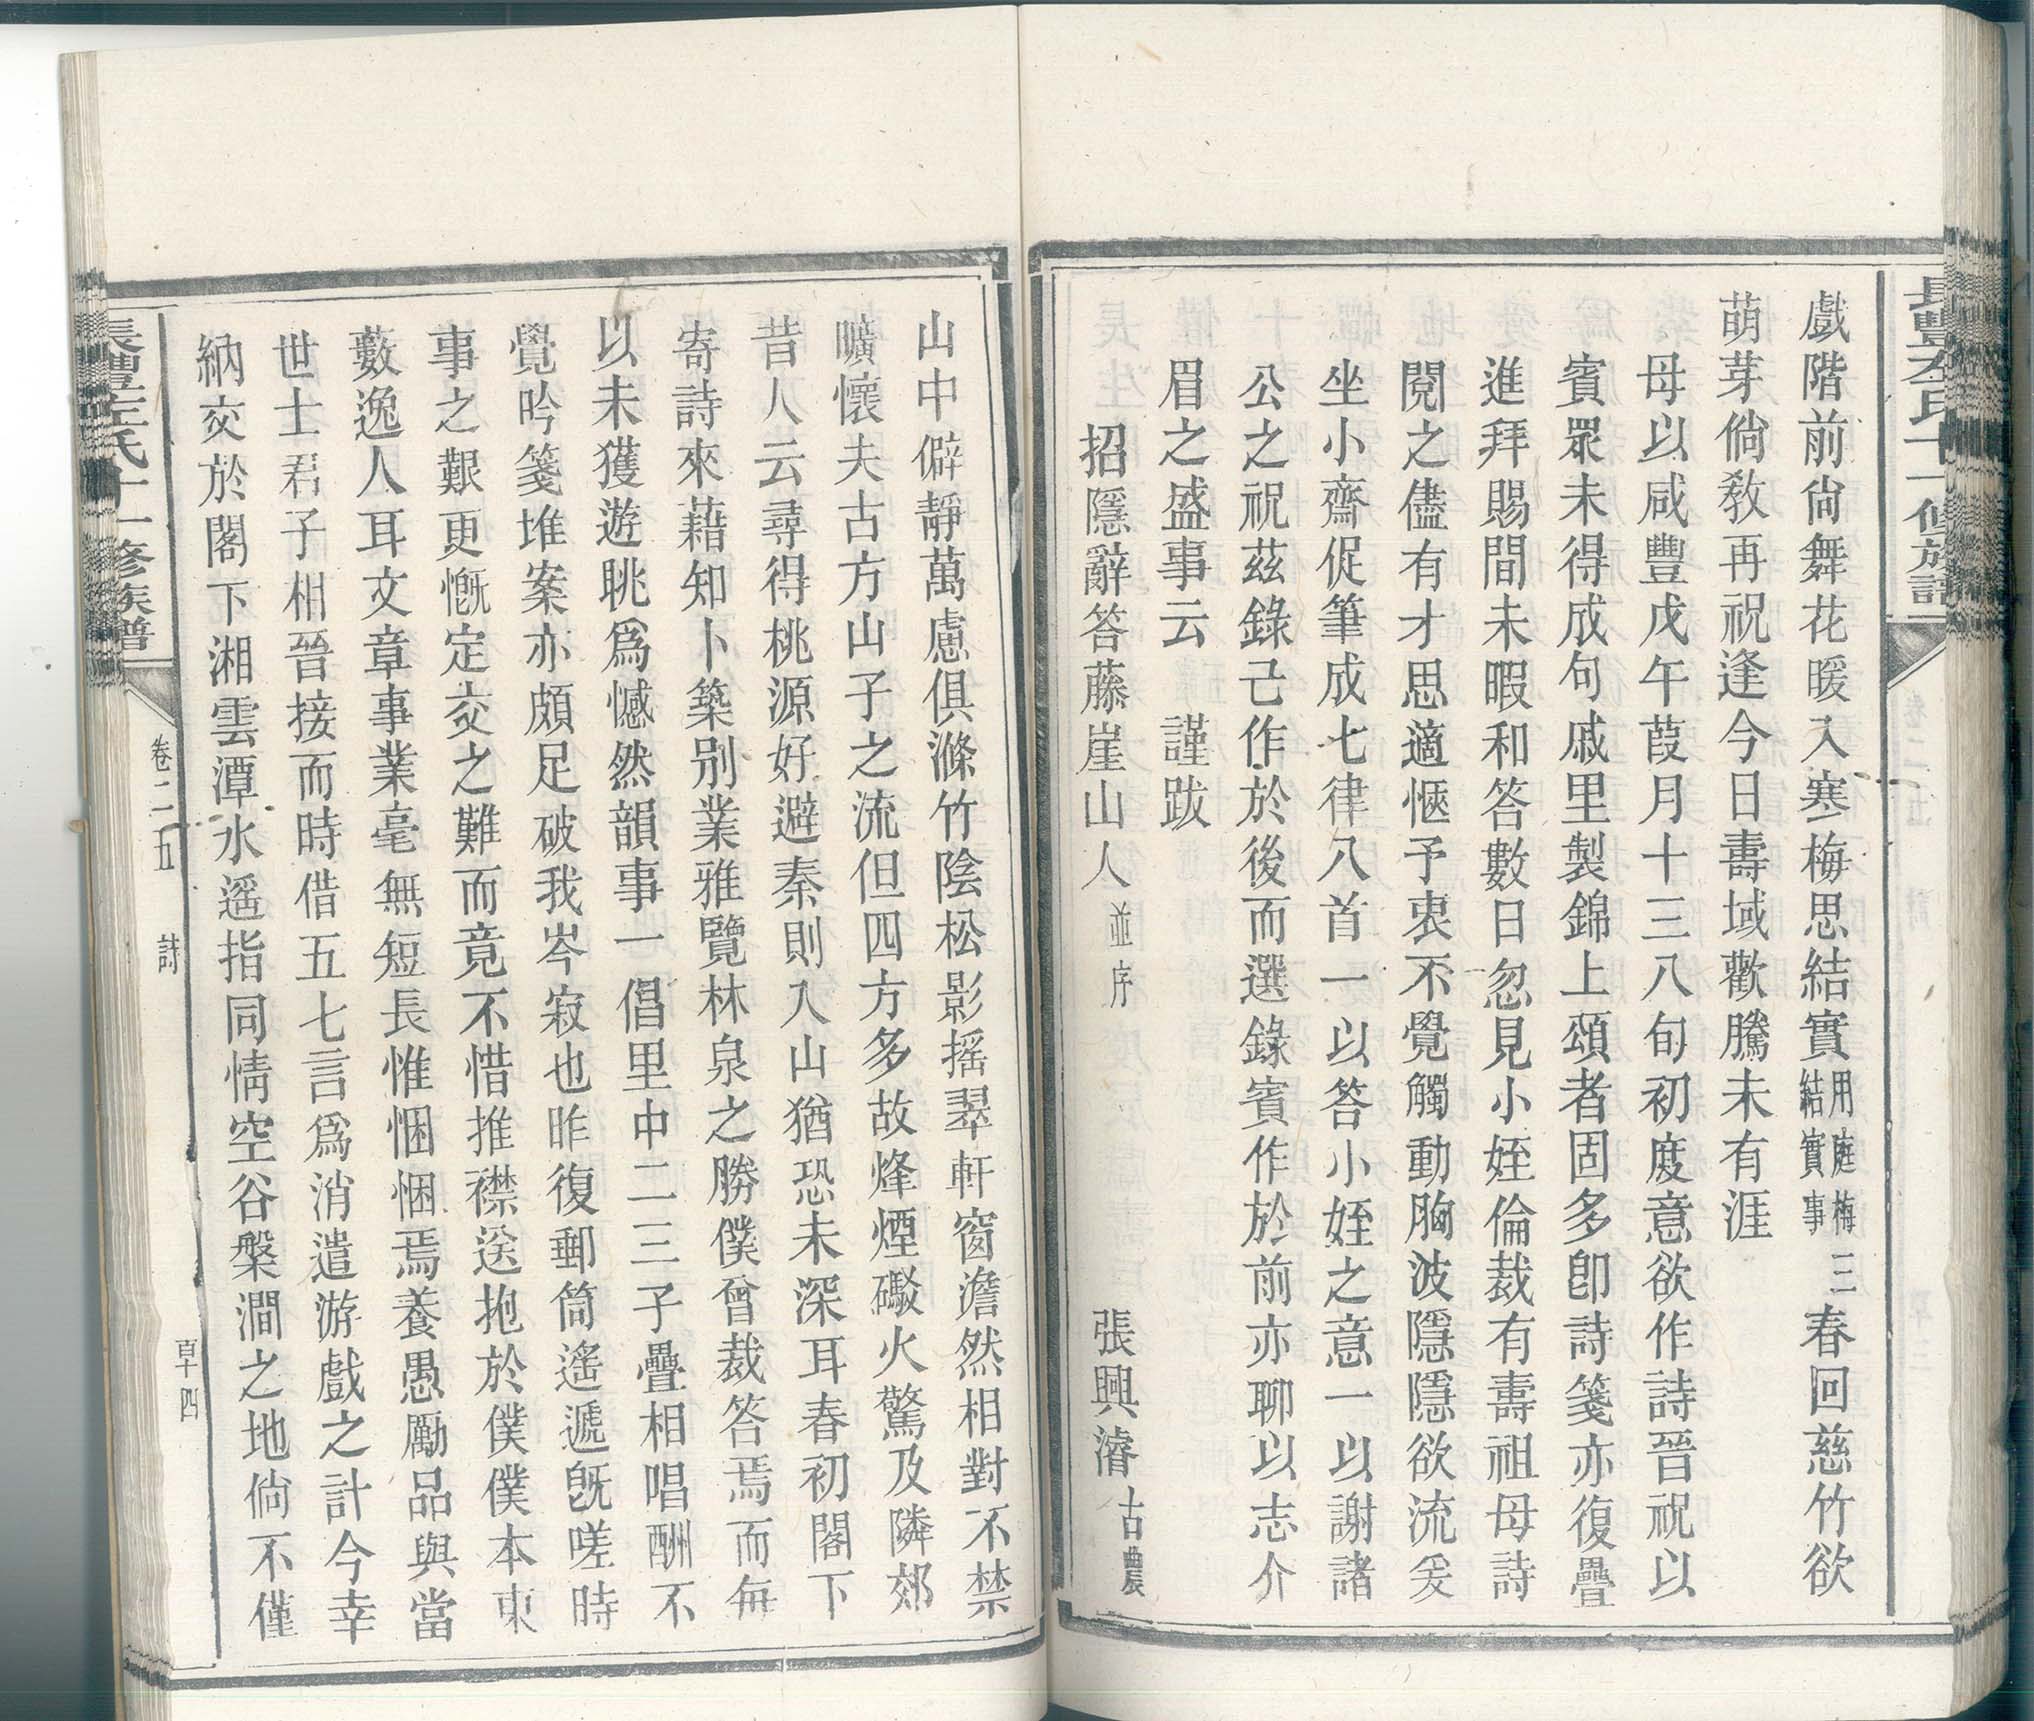 戲階前尙舞花暖入寒梅思結實用庭梅結實事三春回慈竹欲
萌芽倘敎再祝逢今日壽域歡騰未有涯
母以咸豐戊午葭月十三八旬初度意欲作詩晉祝以
賓眾未得成句戚里製錦上頌者固多卽詩箋亦復疊
進拜賜間未暇和答數日忽見小姪倫裁有壽祖母詩
閱之儘有才思適愜予衷不覺觸動胸波隱隱欲流爰
坐小齋促筆成七律八首一以答小姪之意一以謝諸
公之祝茲錄己作於後而選錄賓作於前亦聊以志介
眉之盛事云　謹跋
招隱辭答藤崖山人並序　張興濬古農
山中僻靜萬慮俱滌竹陰松影搖翠軒窗澹然相對不禁
曠懷夫古方山子之流但四方多故烽煙礮火驚及隣郊
昔人云尋得桃源好避秦則入山猶恐未深耳春初閣下
寄詩來藉知卜築別業雅覽林泉之勝僕曾裁答焉而每
以未獲遊眺爲憾然韻事一倡里中二三子疊相唱酬不
覺吟箋堆案亦頗足破我岑寂也昨復郵筒遙遞旣嗟時
事之艱更慨定交之難而竟不惜推襟送抱於僕僕本東
藪逸人耳文章事業毫無短長惟悃悃焉養愚勵品與當
世士君子相晉接而時借五七言爲消遣游戲之計今幸
納交於閣下湘雲潭水遥指同情空谷槃澗之地倘不僅
卷二五　詩　百十四